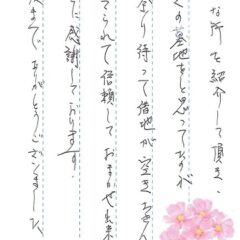 な所を紹介して頂き、
くの墓地をと思っておりましたが
余り待って借地が空きません
てられて信頼しておまかせ出来
に感謝しております。
まで ありがとうございました。